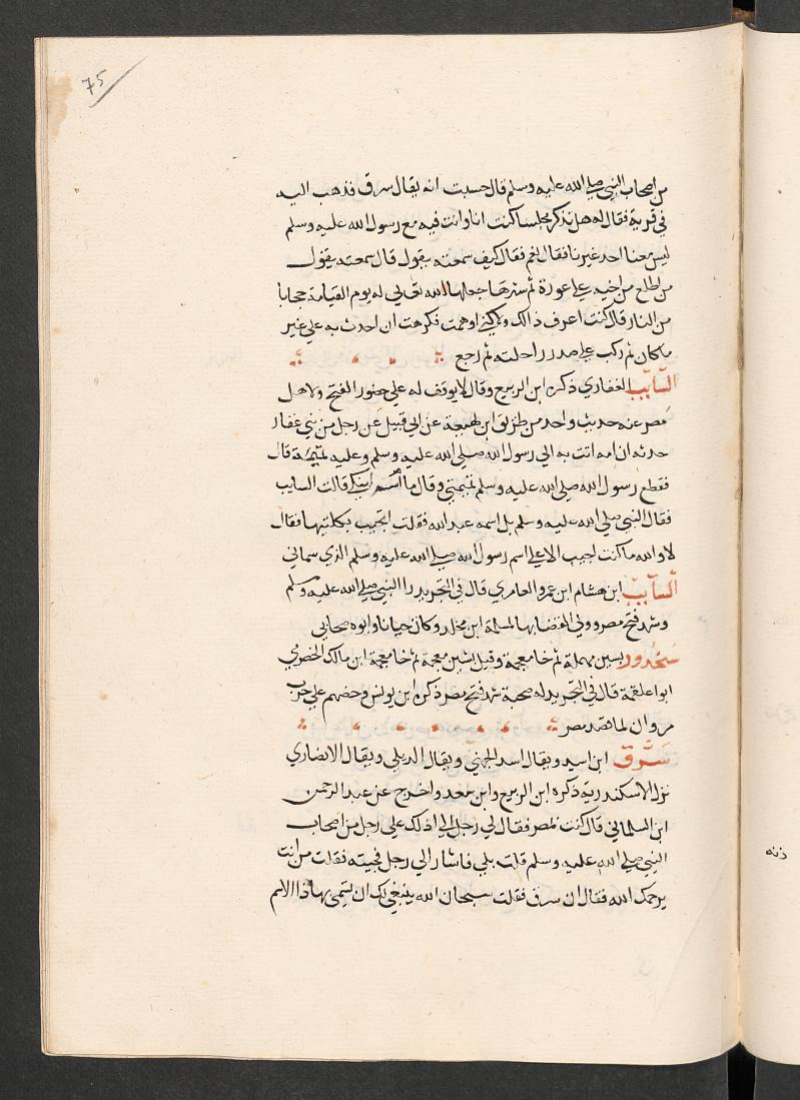 75
من اصحاب النبي صلي الله عليه وسلم قال حسبت انه يقال سرق فذهب اليه
في قرية فقال له هل تذكر مجلسا كنت انا وانت فيه مع رسول الله عليه وسلم
ليس معنا احد غيرنا فقال نعم فقال كيف سمعته يقول قال سمعته يقول
من اطلع من اخيه علي عورة ثم سترها جعلها الله تعالي له يوم القيامة حجابا
من النار قال كنت اعرف ذالك ولكني اوهمت فكرهت ان احدث به علي غير
ما كان ثم ركب علي صدر راحلته ثم رجع
السايب الغفاري ذكره ابن الربيع وقال لا يوقف له علي حضور الفتح ولاهل
مصر عنه حديث واحد من طريق ابن لهيعة عن ابي قبيل عن رجل من بني غفار
حدثه ان امه اتت به الي رسول الله صلي الله عليه وسلم وعليه تميمة قال
فقطع رسول الله صلي الله عليه وسلم تميمتي وقال ما اسم ابنك قالت السايب
فقال النبي صلي الله عليه وسلم بل اسمه عبد الله فقلت اتجيب بكلتيهما فقال
لا والله ما كنت لجيب الا علي اسم رسول الله صلي الله عليه وسلم الذي سماني
السايب ابن هشام ابن عمرو العامري قال في التجريد راا النبي صلي الله عليه وسلم
وشهد فتح مصر وولي القضا بها لمسلمة ابن مخلد وكان جبانا وابوه صحابي
سخدور بسين مهملة ثم خا معجمة وقيل بشين معجمة ثم خا معجمة ابن مالك الحضرمي
ابوا علقمة قال في التجريد له صحبة شهد فتح مصر ذكره ابن يونس وحضهم علي حرب
مروان لما قصد مصر
سرق ابن اسيد ويقال اسد الجهني ويقال الديلي ويقال الانصاري
نزل الاسكندرية ذكره ابن الربيع وابن سعد واخرج عن عبد الرحمن
ابن السلماني قال كنت بمصر فقال لي رجل الا ادلك علي رجل من اصحاب
النبي صلي الله عليه وسلم قلت بلي فاشار الي رجل فجيته فقلت من انت
يرحمك الله فقال ان سرق فقلت سبحان الله ينبغي لك ان تسمي بهاذا الاسم